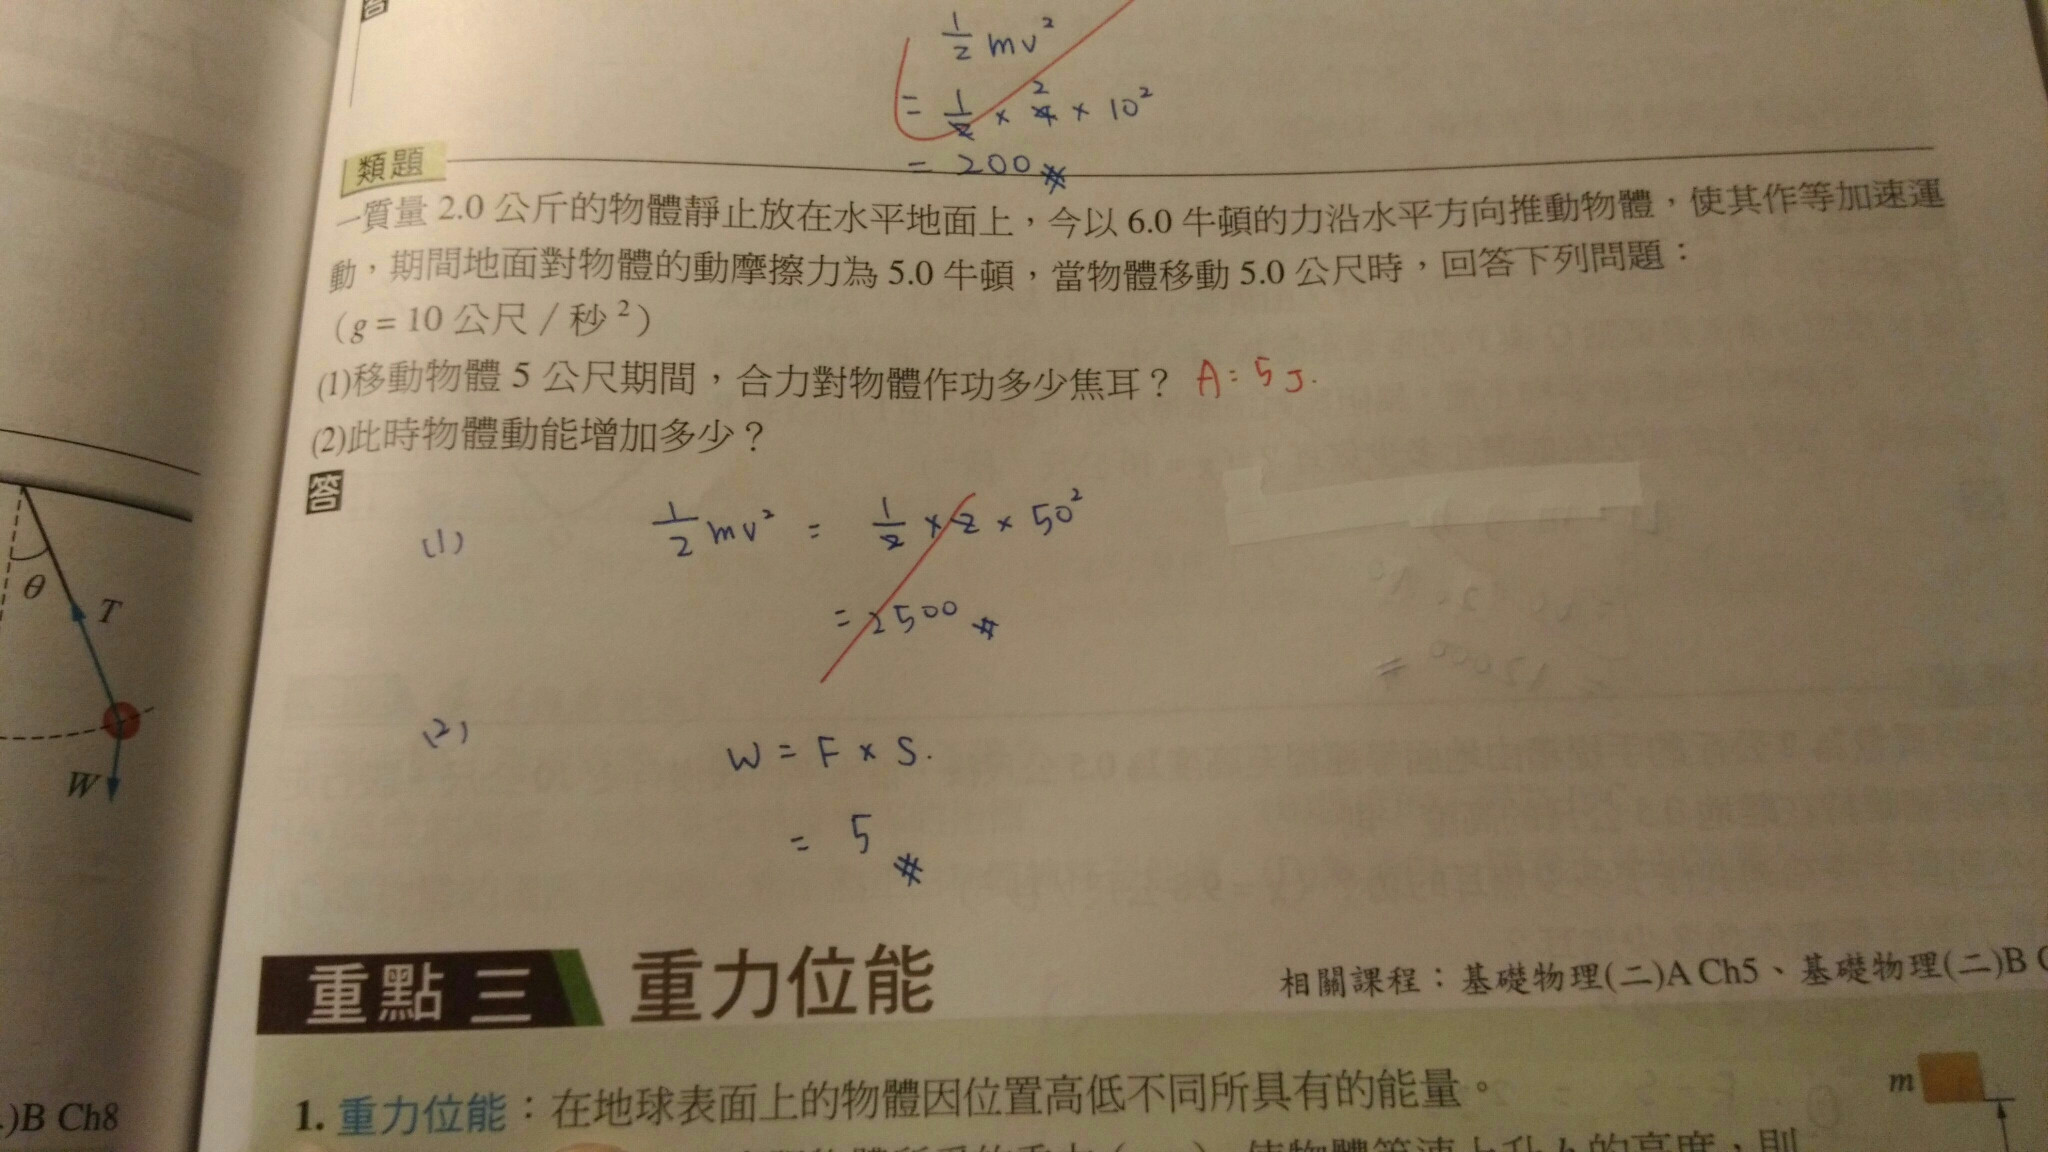 答
1/2 mv²
= 1/2 × 4 2 × 10²
= 200 #
類題
一質量 2.0 公斤的物體靜止放在水平地面上，今以 6.0 牛頓的力沿水平方向推動物體，使其作等加速運
動，期間地面對物體的動摩擦力為 5.0 牛頓，當物體移動 5.0 公尺時，回答下列問題：
（g = 10 公尺／秒²）
(1)移動物體 5 公尺期間，合力對物體作功多少焦耳？ A = 5 J.
(2)此時物體動能增加多少？
答
(1) 1/2 mv² = 1/2 × 2 × 50²
= 2500 #
(2) W = F × S.
= 5 #
θ
T
W
.)B Ch8
重點 三 重力位能
相關課程：基礎物理(二)A Ch5、基礎物理(二)B C
1. 重力位能：在地球表面上的物體因位置高低不同所具有的能量。
m